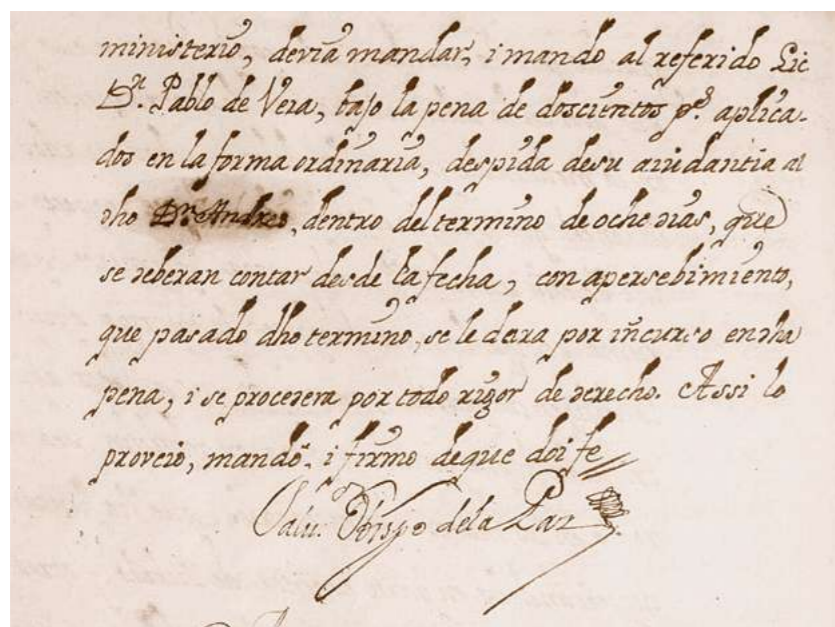 ministerio, devia mandar, i mando al referido Lic
Dn. Pablo de Vera, bajo la pena de doscientos ps. aplica-
dos en la forma ordinaria, despida desu aiudantia al
dho Dn. Andres, dentro del termino de ocho dias, que
se deberan contar desde la fecha, con apersebimiento,
que pasado dho termino, se le dara por incurso en dha
pena, i se procedera por todo rigor de derecho. Assi lo
proveió, mandó, i firmo deque doi fe
Obispo dela Paz